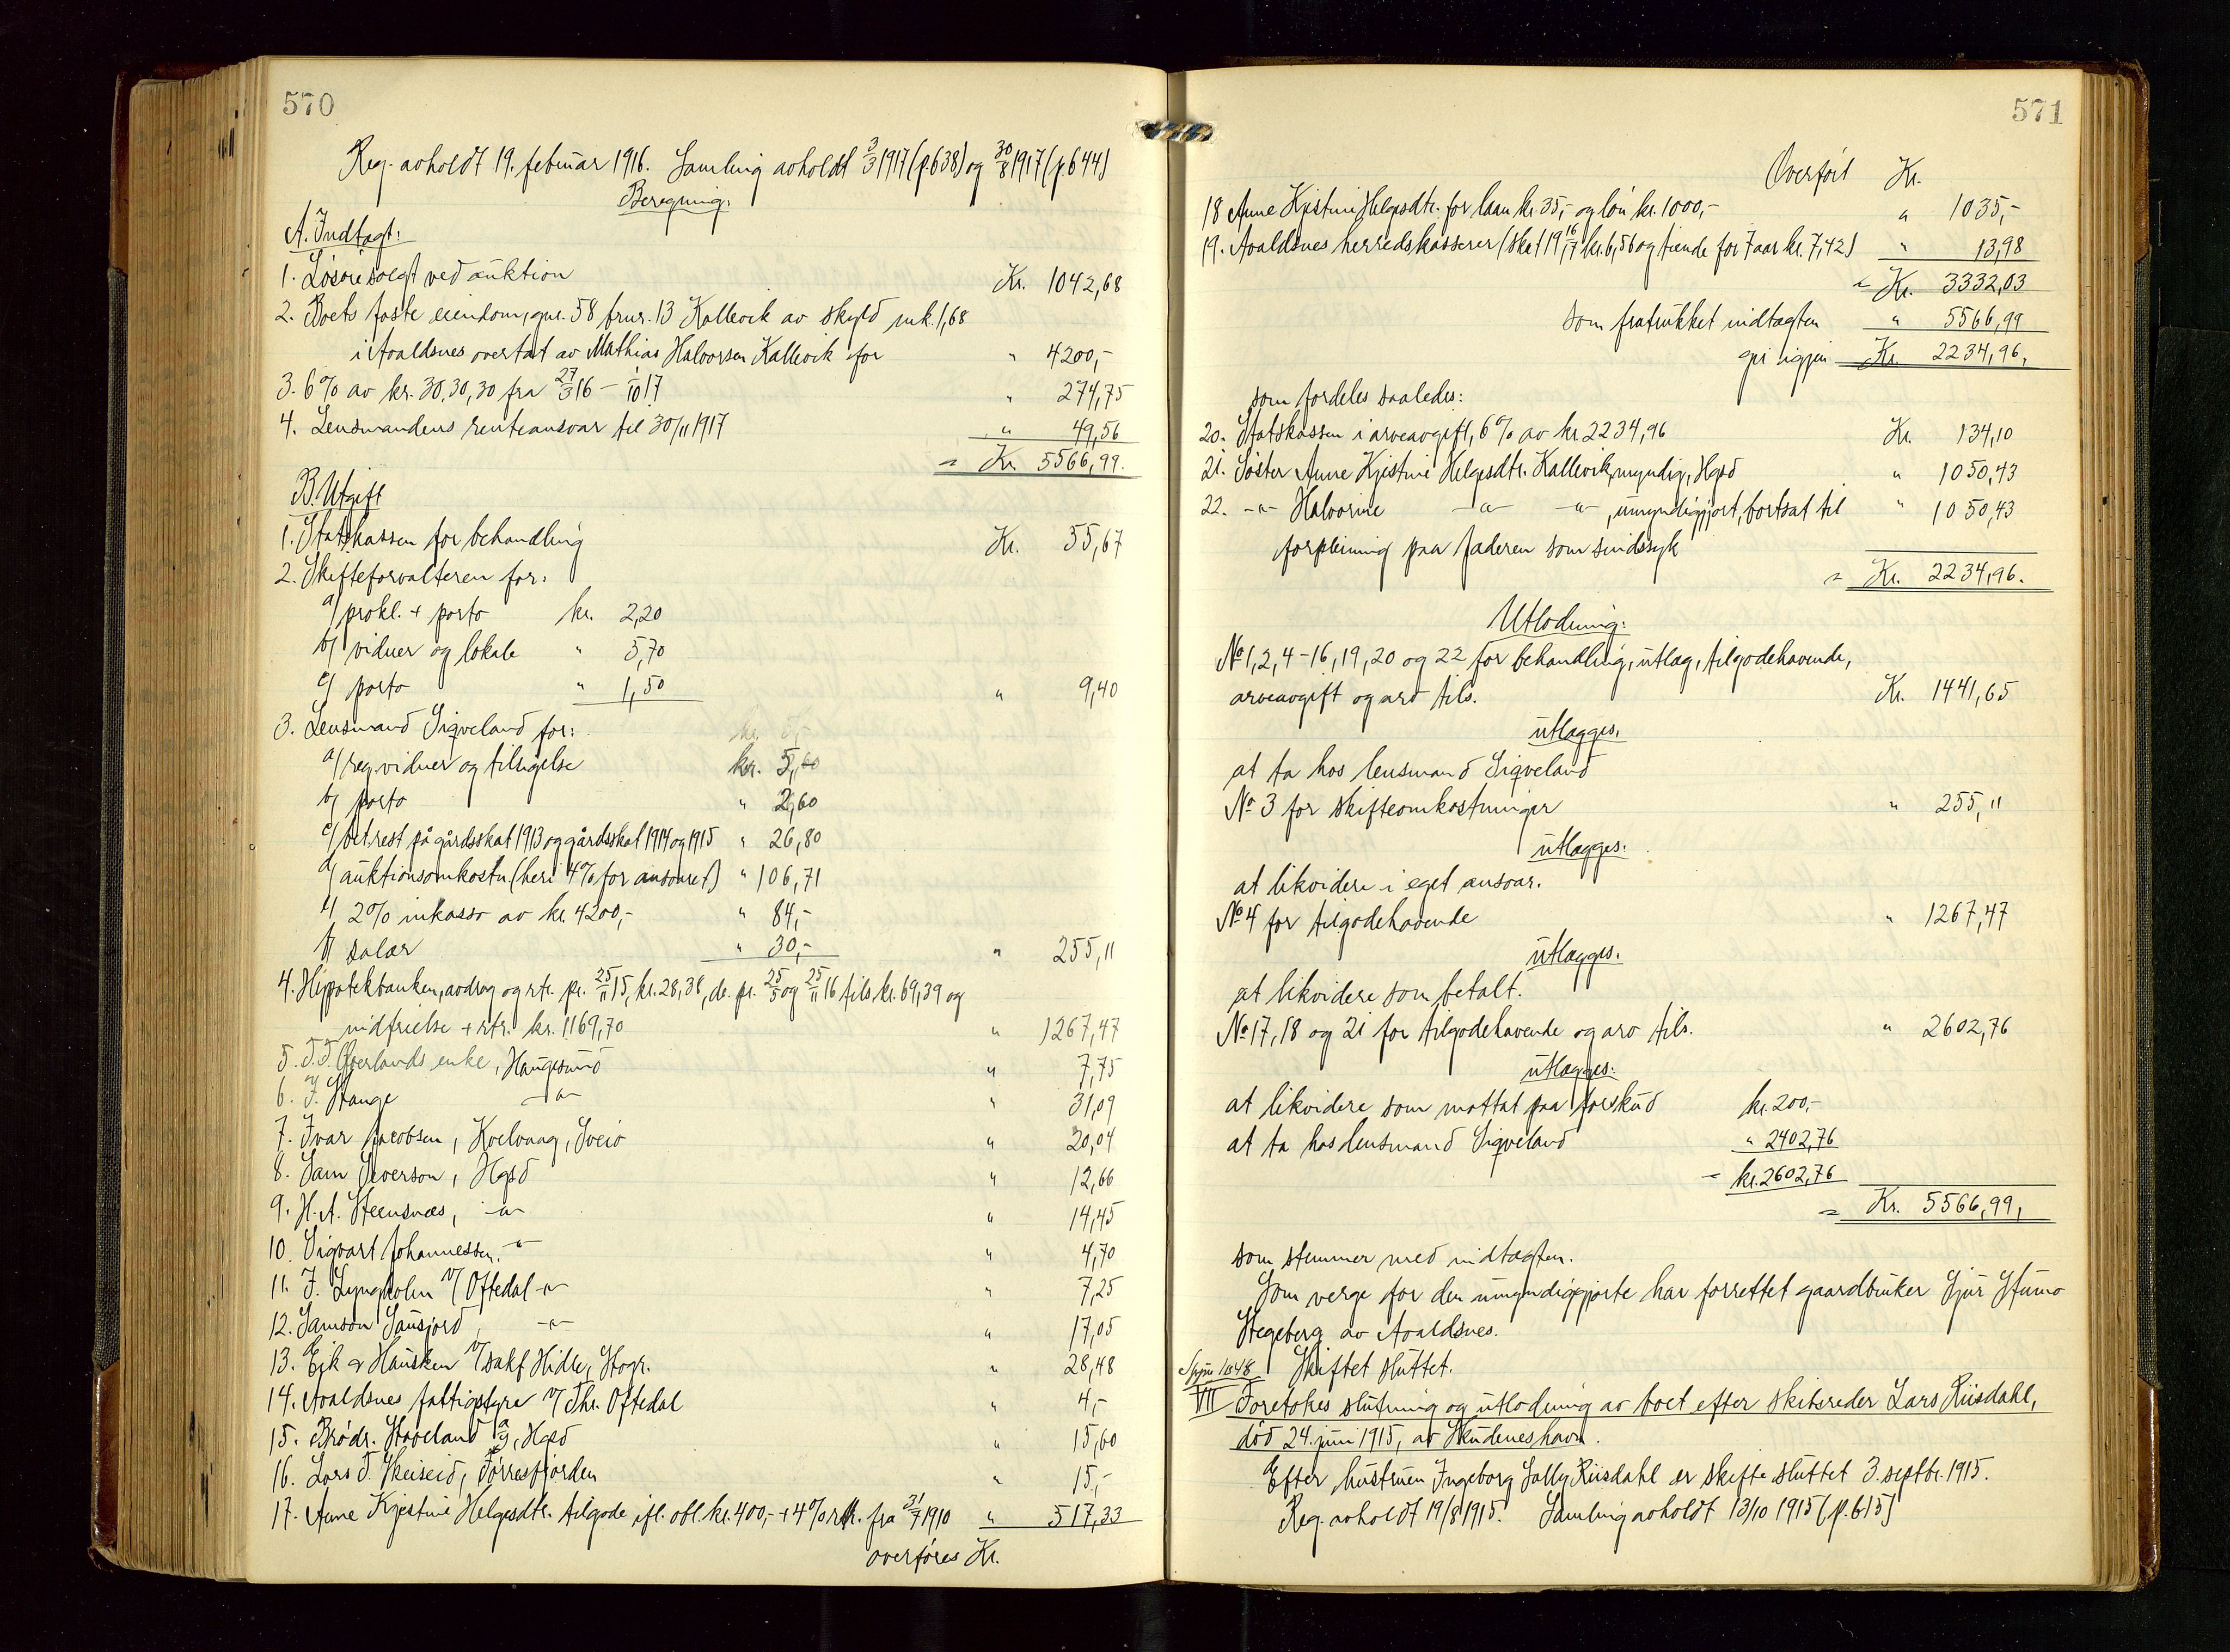 570
Reg. avholdt 19. februar 1916. Samling avholdt 3/3 1917 (p. 638) og 30/8 1917 (p. 644)
Beregning:
A. Indtægt:
1. Løsøre solgt ved auktion Kr. 1042,68
2. Boets faste eiendom, gnr. 58 brnr. 13 Kallevik av skyld mk. 1,68
i Avaldsnes overtat av Mathias Halvorsen Kallevik for " 4200,-
3. 6% av kr. 30,30,30 fra 27/3 16 – 1/10 17 " 274,75
4. Lensmandens renteansvar til 30/11 1917 " 49,56
= Kr. 5566,99.
B. Utgift
1. Statskassen for behandling Kr. 55,67
2. Skifteforvalteren for:
a/ prokl. + porto kr. 2,20
b/ vidner og lokale " 5,70
c/ porto " 1,50 " 9,40
3. Lensmand Sigveland for:
a/ reg. vidner og tilsigelse kr. 5,60
b/ porto " 2,60
c/ bet. rest på gårdsskat 1913 og gårdsskat 1914 og 1915 " 26,80
d/ auktionsomkostn (heri 4% for ansvaret) " 106,71
e/ 2% inkasso av kr. 4200,- " 84,-
f/ salær " 30,- " 255,11
4. Hypotekbanken, avdrag og rtr. pr. 25/11 15, kr. 28,38, do. pr. 25/5 og 25/11 16 tils kr. 69,39 og
indfrielse + rtr. kr. 1169,70 " 1267,47
5. T. T. Øverlands enke, Haugesund " 7,75
6. J. Stange -"- " 31,09
7. Ivar Jacobsen, Kvelvaag, Sveio " 20,04
8. Sam Severson, Hgsd " 12,66
9. H. A. Steensnæs, -"- " 14,45
10. Sigvart Johannessen, -"- " 4,70
11. J. Lyngholm v/ Oftedal -"- " 7,25
12. Samson Sausjord, -"- " 17,05
13. Eik & Hausken v/ sakf Hidle, Stvgr. " 28,48
14. Avaldsnes fattigstyre v/ Thr. Oftedal " 4,-
15. Brødr. Stoveland, Hgsd " 15,60
16. Lars T. Skeiseid, Førresfjorden " 15,-
17. Anne Kjestine Helgesdtr. tilgode ifl. obl. kr. 400,- + 4% rtr. fra 31/7 1910 " 517,33
overføres Kr.
571
Overført Kr.
18 Anne Kjestine Helgesdtr. for laan kr. 35,- og løn kr. 1000,- " 1035,-
19. Avaldsnes herredskasserer (skat 19 16/17 kr. 6,56 og tiende for 7 aar kr. 7,42) " 13,98
= Kr. 3332,03
som fratrukket indtægten " 5566,99
gir igjen Kr. 2234,96,
som fordeles saaledes:
20. Statskassen i arveavgift, 6% av kr 2234,96 Kr. 134,10
21. Søster Anne Kjestine Helgesdtr. Kallevik, myndig, Hgsd " 1050,43
22. -"- Halvorine -"- -"-, umyndiggjort, bortsat til " 1050,43
forpleining paa faderen som sindssyk
= Kr. 2234,96.
Utlodning:
No 1, 2, 4-16, 19, 20 og 22 for behandling, utlæg, tilgodehavende,
arveavgift og arv tils. Kr. 1441,65
utlægges.
at ta hos lensmand Sigveland
No 3 for skifteomkostninger " 255,11
utlægges:
at likvidere i eget ansvar.
No 4 for tilgodehavende " 1267,47
utlægges.
at likvidere som betalt.
No 17, 18 og 21 for tilgodehavende og arv tils. " 2602,76
utlægges:
at likvidere som mottat paa forskud kr. 200,-
at ta hos lensmand Sigveland " 2402,76
= kr. 2602,76
= Kr. 5566,99,
som stemmer med indtægten.
Som verge for den umyndiggjorte har forrettet gaardbruker Sjur Sturno
Stegeberg av Avaldsnes.
Skiftet sluttet.
VIII Foretokes slutning og utlodning av boet efter skibsreder Lars Riisdahl,
død 24. juni 1915, av Skudeneshavn.
Efter hustruen Ingeborg Sally Riisdahl er skifte sluttet 3. septbr. 1915.
Reg. avholdt 19/8 1915. Samling avholdt 13/10 1915 (p. 615)